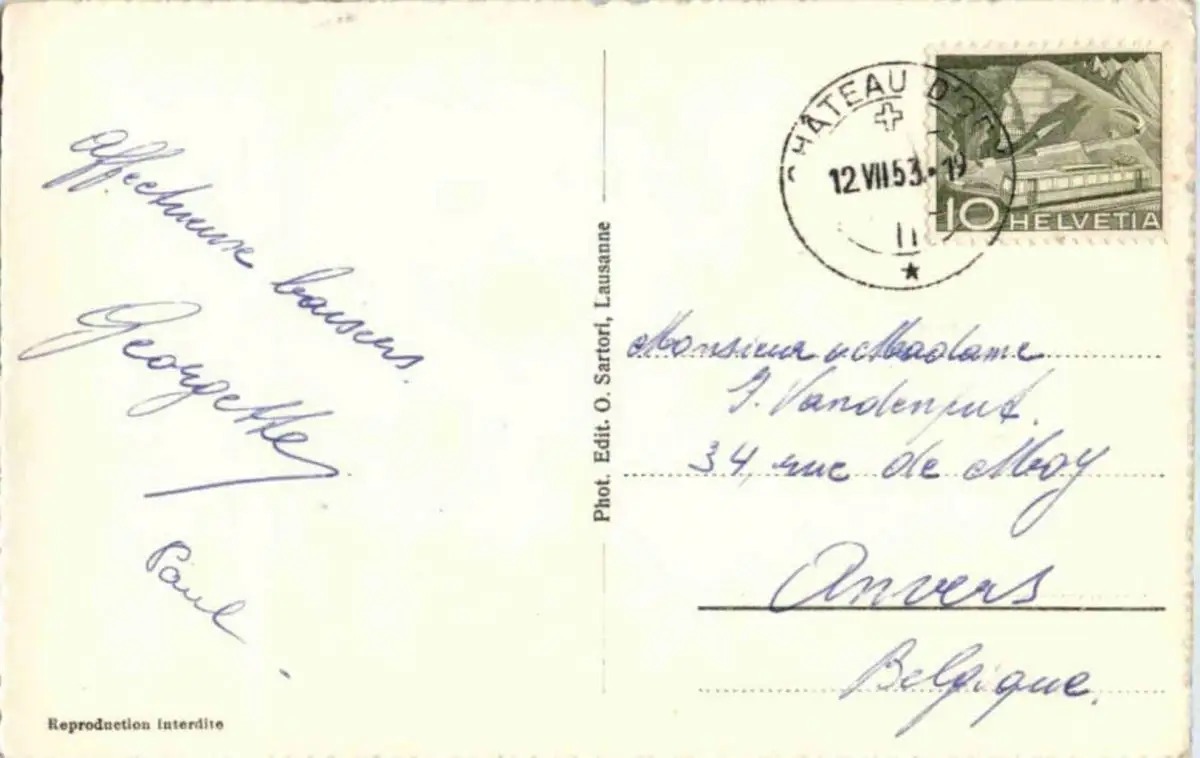 affectueuse baisers.
Georgette
Paul
Reproduction interdite
Phot. Edit. O. Sartori, Lausanne
CHÂTEAU D'OEX
12 VII 53 • 19
II
10 HELVETIA
Monsieur & Madame
J. Vandenput.
34, rue de Moy
Anvers
Belgique.